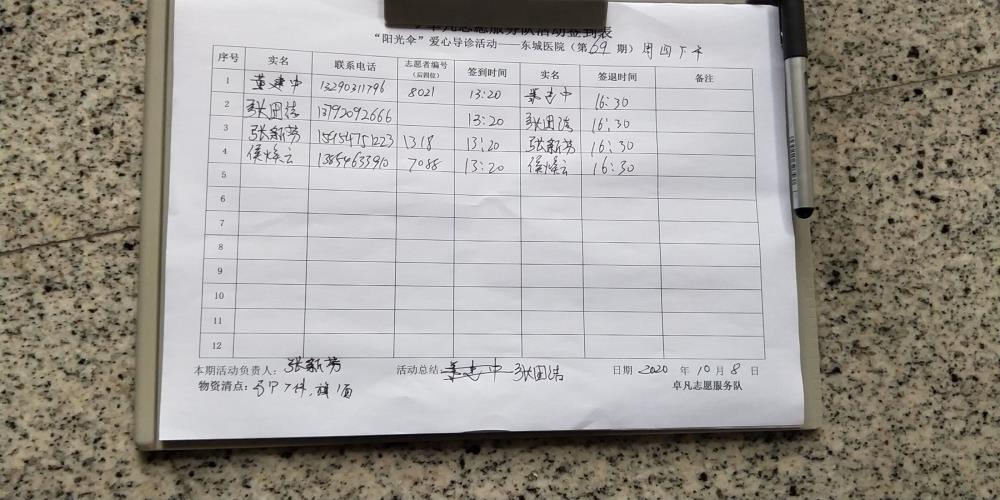 卓凡志愿服务队活动签到表
“阳光伞”爱心导诊活动——东城医院（第69期）周四下午
序号 实名 联系电话 志愿者编号（后四位） 签到时间 实名 签退时间 备注
1 董建中 13290311796 8021 13:20 董建中 16:30
2 张国洁 13792092666 13:20 张国洁 16:30
3 张新芳 15954751223 1318 13:20 张新芳 16:30
4 侯焕云 13854633910 7088 13:20 侯焕云 16:30
5
6
7
8
9
10
11
12
本期活动负责人：张新芳 活动总结：董建中 张国洁 日期 2020 年 10 月 8 日
物资清点：马甲7件，旗1面 卓凡志愿服务队